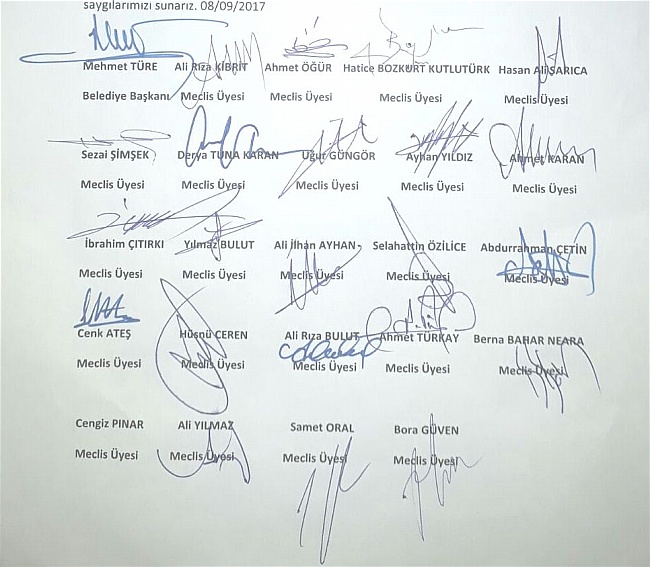 saygılarımızı sunarız. 08/09/2017
Mehmet TÜRE Ali Rıza KİBRİT Ahmet ÖĞÜR Hatice BOZKURT KUTLUTÜRK Hasan Ali SARICA
Belediye Başkanı Meclis Üyesi Meclis Üyesi Meclis Üyesi Meclis Üyesi
Sezai ŞİMŞEK Derya TUNA KARAN Uğur GÜNGÖR Ayhan YILDIZ Ahmet KARAN
Meclis Üyesi Meclis Üyesi Meclis Üyesi Meclis Üyesi Meclis Üyesi
İbrahim ÇITIRKI Yılmaz BULUT Ali İlhan AYHAN Selahattin ÖZİLİCE Abdurrahman ÇETİN
Meclis Üyesi Meclis Üyesi Meclis Üyesi Meclis Üyesi Meclis Üyesi
Cenk ATEŞ Hüsnü ÇEREN Ali Rıza BULUT Ahmet TÜRKAY Berna BAHAR NEARA
Meclis Üyesi Meclis Üyesi Meclis Üyesi Meclis Üyesi Meclis Üyesi
Cengiz PINAR Ali YILMAZ Samet ORAL Bora GÜVEN
Meclis Üyesi Meclis Üyesi Meclis Üyesi Meclis Üyesi